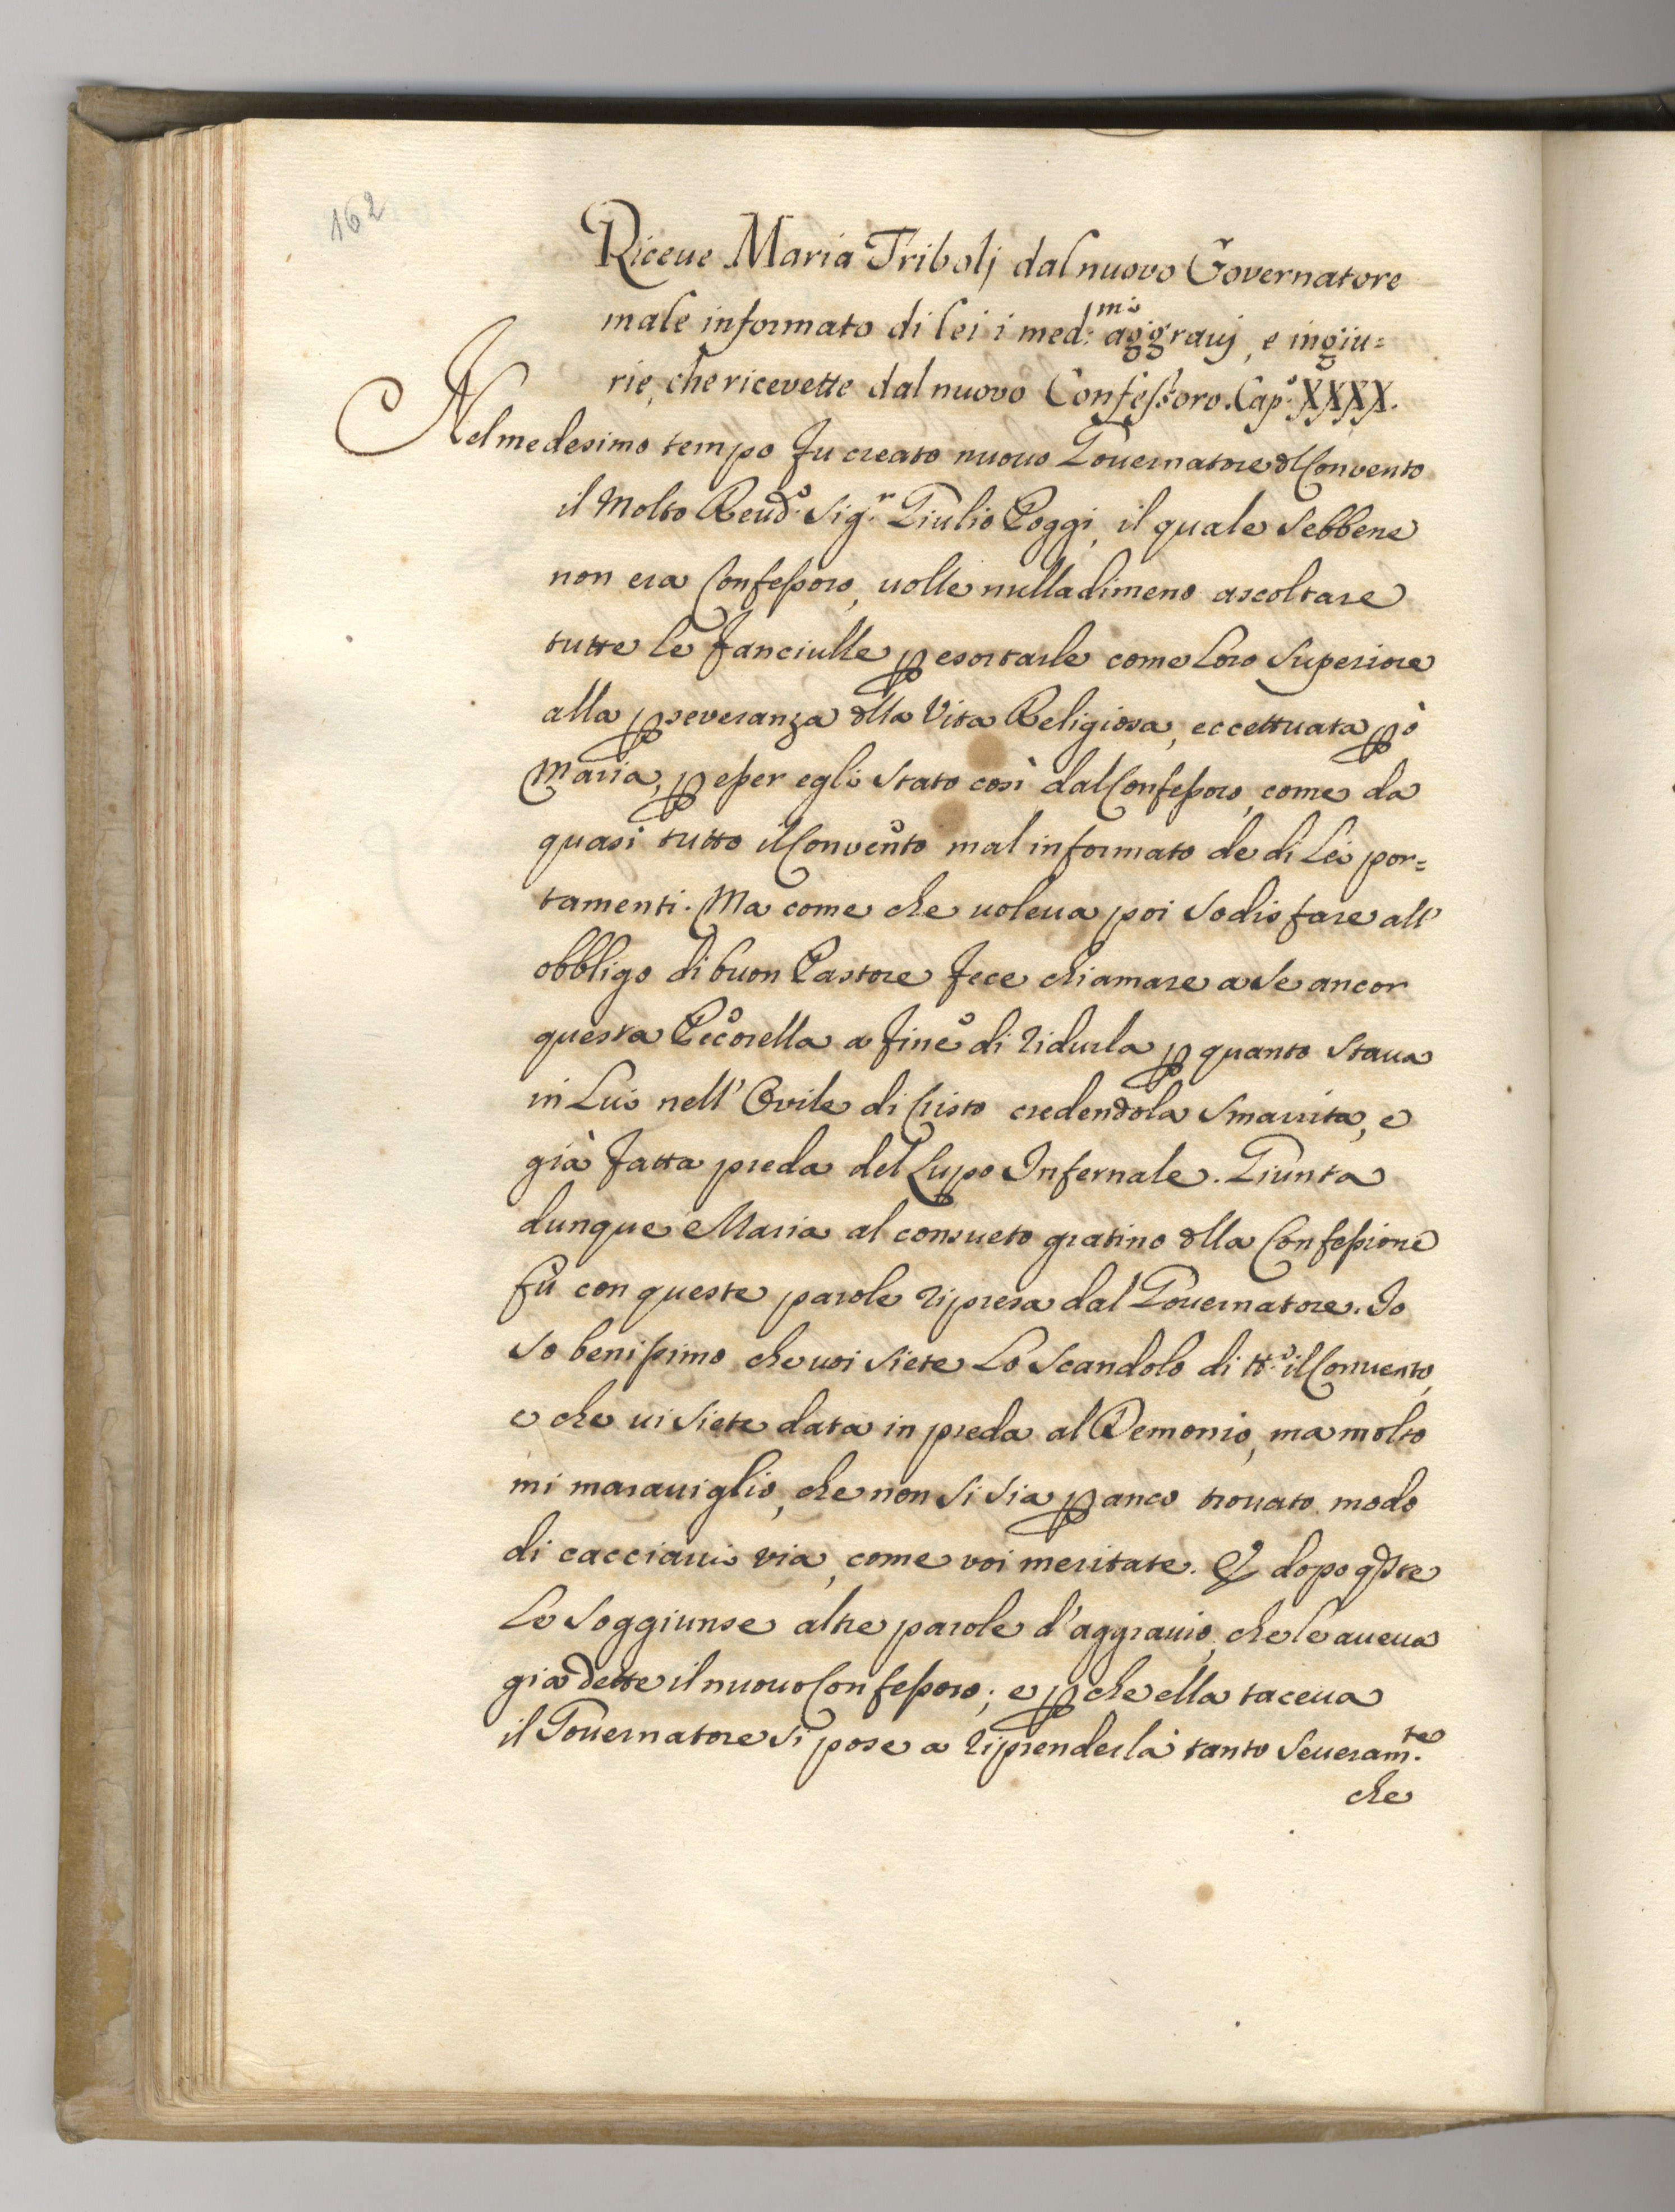 162
Riceue Maria Tribolj dal nuovo Governatore
male informato di lei i med:mi aggrauj, e ingiu=
rie, che ricevette dal nuovo Confessoro. Cap:o XXXX.
Nel medesimo tempo fu creato nuouo Gouernatore dl Convento
il Molto Reud:o Sig:r Giulio Poggi, il quale sebbene
non era Confessoro, uolle nulladimeno ascoltare
tutte le fanciulle p esortarle come loro Superiore
alla pseveranza dlla Vita Religiosa, eccettuata pò
Maria, p esser egli stato così dal Confessoro, come da
quasi tutto il Convento mal informato de di Lei por=
tamenti. Ma come che uoleua poi sodisfare all'
obbligo di buon Pastore fece chiamare a se ancor
questa Pecorella a fine di ridurla p quanto staua
in Lui nell' Ovile di Cristo credendola smarrita, e
già fatta preda del Lupo Infernale. Giunta
dunque Maria al consueto gratino dlla Confessione
fù con queste parole ripresa dal Gouernatore. Io
so benissimo che uoi siete lo scandolo di tt:o il Conuento,
e che ui siete data in preda al Demonio, ma molto
mi marauiglio, che non si sia p anco trouato modo
di cacciarui via, come voi meritate. E dopo qste
le soggiunse altre parole d'aggrauio, che le aueua
gia dette il nuouo Confessoro; e p che ella taceua
il Gouernatore si pose a riprenderla tanto seueram:te
che